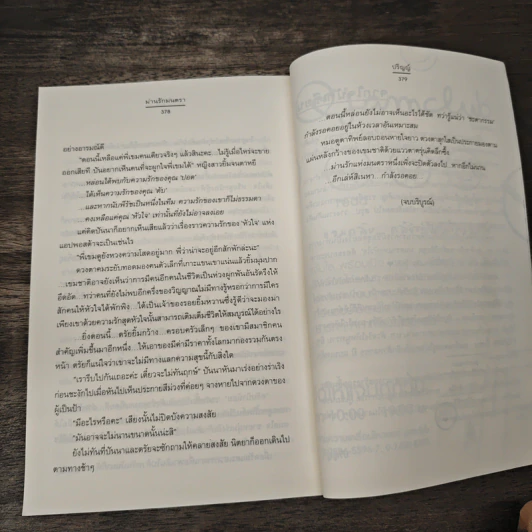 ม่านรักมนตรา
378
อย่างอารมณ์ดี
"ตอนนี้เหลือแค่พี่เขมคนเดียวจริงๆ แล้วสินะคะ...ไม่รู้เมื่อไหร่จะขาย
ออกเสียที ปันอยากเห็นคนที่จะผูกใจพี่เขมได้" หญิงสาวยิ้มจนตาหยี
หล่อนได้พบกับความรักของคุณ 'ปอด'
ได้เห็นความรักของคุณ 'ตับ'
...และหากนับพีรัชเป็นหนึ่งในทีม ความรักของเขาก็ไม่ธรรมดา
คงเหลือแค่คุณ 'หัวใจ' เท่านั้นที่ยังไม่อาจลงเอย
แค่คิดปันนาก็อยากเห็นเสียแล้วว่าเรื่องราวความรักของ 'หัวใจ' แห่ง
แอปพอสต้าจะเป็นเช่นไร
"พี่เขมดูยังหวงความโสดอยู่มาก พี่ว่าน่าจะอยู่อีกสักพักล่ะนะ"
ดวงตาคมระยับทอดมองคนตัวเล็กที่เกาะแขนเขาแน่นแล้วยิ้มมุมปาก
...เขมชาติอาจยังเห็นว่าการมีคนอีกคนในชีวิตเป็นห่วงผูกพันอันรัดรึงให้
อึดอัด...ทว่าคนที่ยังไม่พบอีกครึ่งของวิญญาณไม่มีทางรู้หรอกว่าการมีใคร
สักคนให้หัวใจได้พักพิง...ได้เป็นเจ้าของรอยยิ้มหวานซึ้งรู้ดีว่าจะมองมา
เพียงเขาด้วยความรักสุดหัวใจนั้นสามารถเติมเต็มชีวิตให้สมบูรณ์ได้อย่างไร
...ยิ่งตอนนี้...ตรัยยิ้มกว้าง...ครอบครัวเล็กๆ ของเขามีสมาชิกคน
สำคัญเพิ่มขึ้นมาอีกหนึ่ง...ให้เอาของมีค่ามีราคาทั้งโลกมากองรวมกันตรง
หน้า ตรัยก็แน่ใจว่าเขาจะไม่มีทางแลกความสุขนี้กับสิ่งใด
"เรารีบไปกันเถอะค่ะ เดี๋ยวจะไม่ทันฤกษ์" ปันนาหันมาเร่งอย่างร่าเริง
ก่อนชะงักไปเมื่อหันไปเห็นประกายสีม่วงที่ค่อยๆ จางหายไปจากดวงตาของ
ผู้เป็นป้า
"มีอะไรหรือคะ" เสียงนั้นไม่ปิดบังความสงสัย
"มันอาจจะไม่นานขนาดนั้นน่ะสิ"
ยังไม่ทันที่ปันนาและตรัยจะซักถามให้คลายสงสัย นิตยาก็ออกเดินไป
ตามทางช้าๆ
ปริญญ์
379
ตอนนี้หล่อนยังไม่อาจเห็นอะไรได้ชัด ทว่ารู้แน่ว่า 'ชะตากรรม'
กำลังรอคอยอยู่ในห้วงเวลาอันเหมาะสม
หมอดูตาทิพย์ลอบถอนหายใจยาว ดวงตาสุกใสเป็นประกายมองตาม
แผ่นหลังกว้างของเขมชาติด้วยแววตาครุ่นคิดลึกซึ้ง
ม่านรักแห่งมนตราหนึ่งเพิ่งจะปิดตัวลงไป หากอีกไม่นาน
...อีกเล่ห์สิเนหา...กำลังรอคอย
(จบบริบูรณ์)